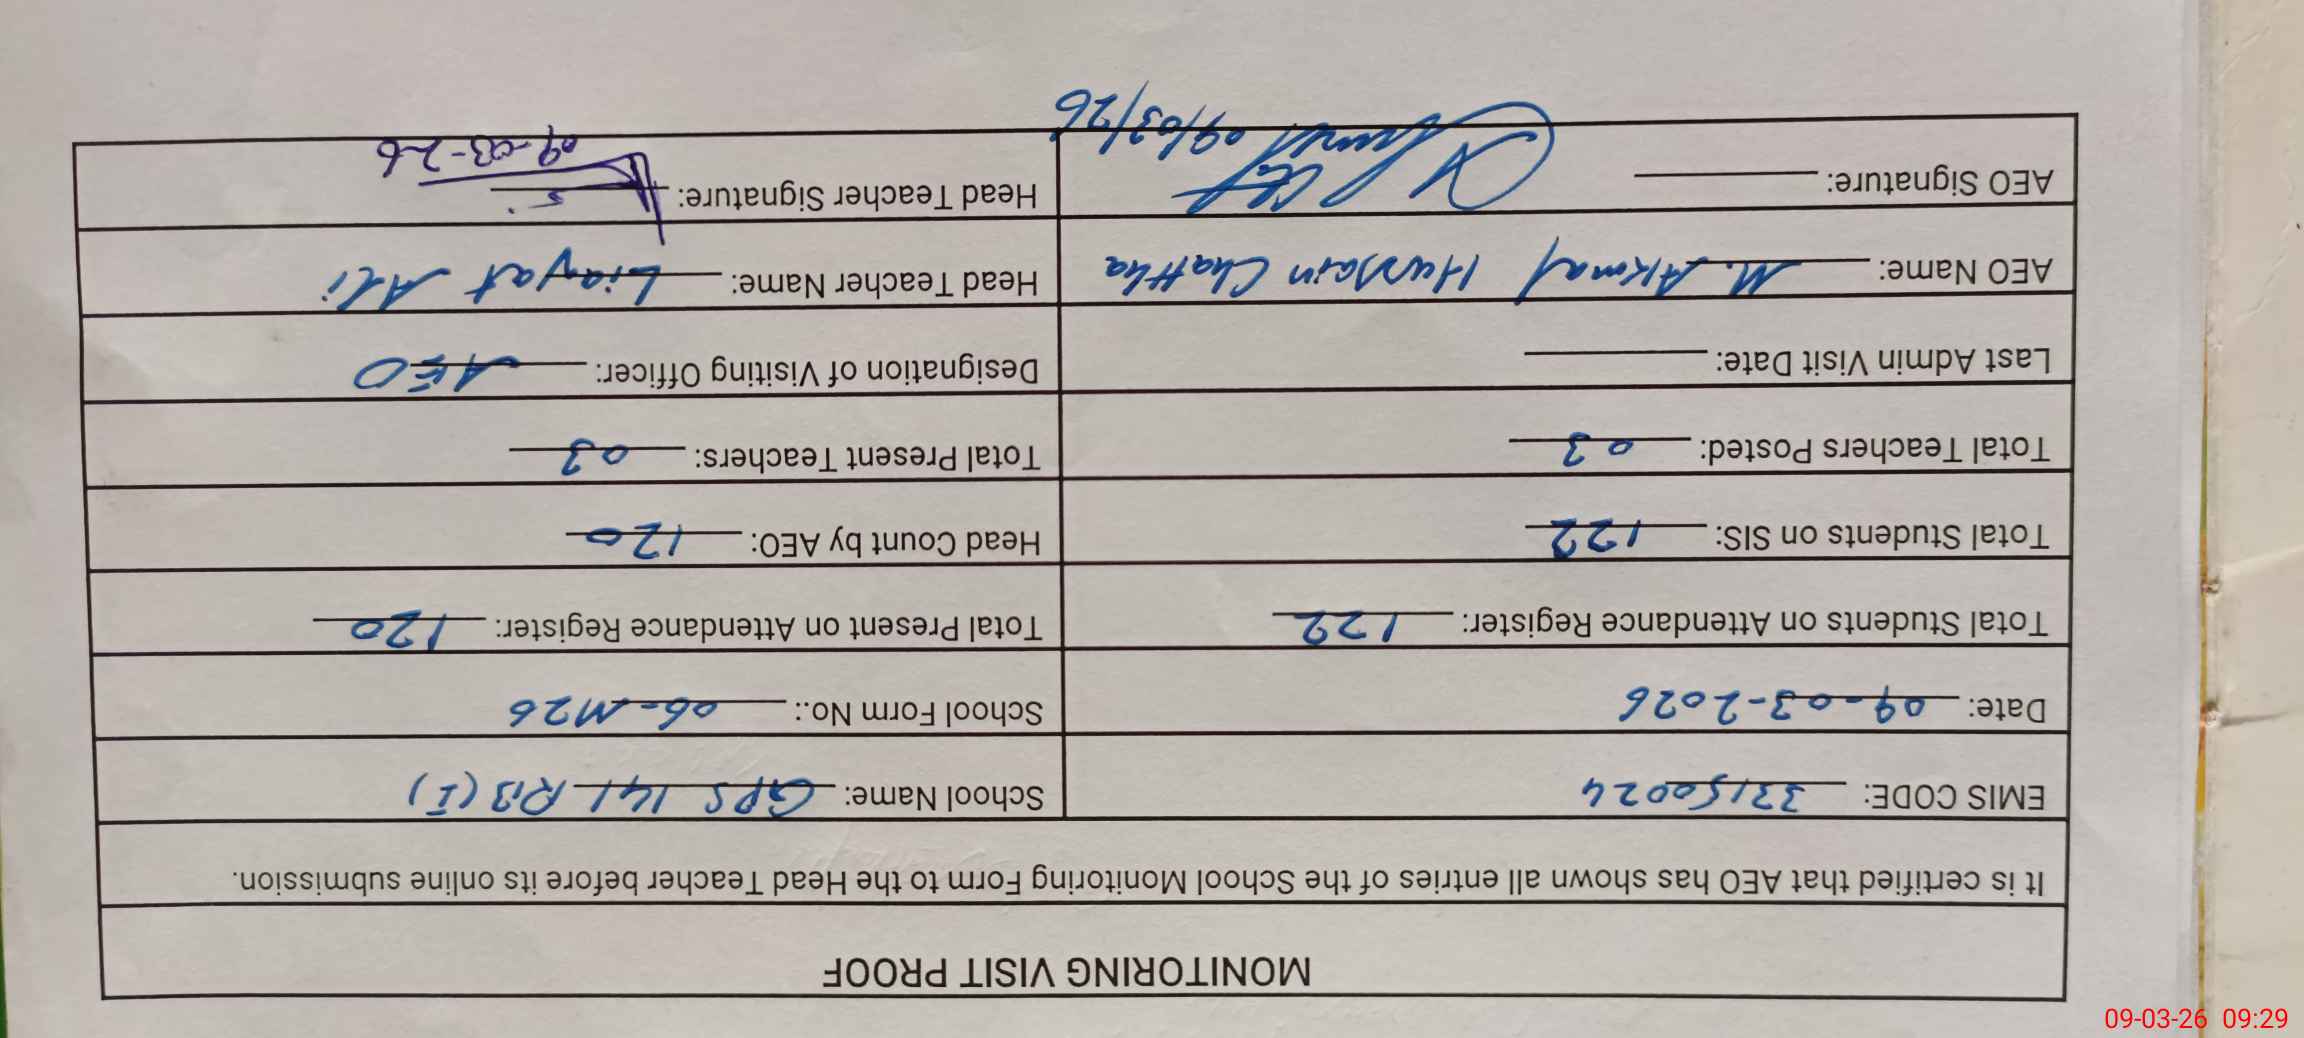 MONITORING VISIT PROOF
It is certified that AEO has shown all entries of the School Monitoring Form to the Head Teacher before its online submission.
EMIS CODE: 33150024 School Name: GPS 141 RB (I)
Date: 09-03-2026 School Form No.: 06-M26
Total Students on Attendance Register: 122 Total Present on Attendance Register: 120
Total Students on SIS: 122 Head Count by AEO: 120
Total Teachers Posted: 03 Total Present Teachers: 03
Last Admin Visit Date: Designation of Visiting Officer: AEO
AEO Name: M. Akmal Hussain Chattha Head Teacher Name: Liaqat Ali
AEO Signature: 09/03/26 Head Teacher Signature: 09-03-26
09-03-26 09:29